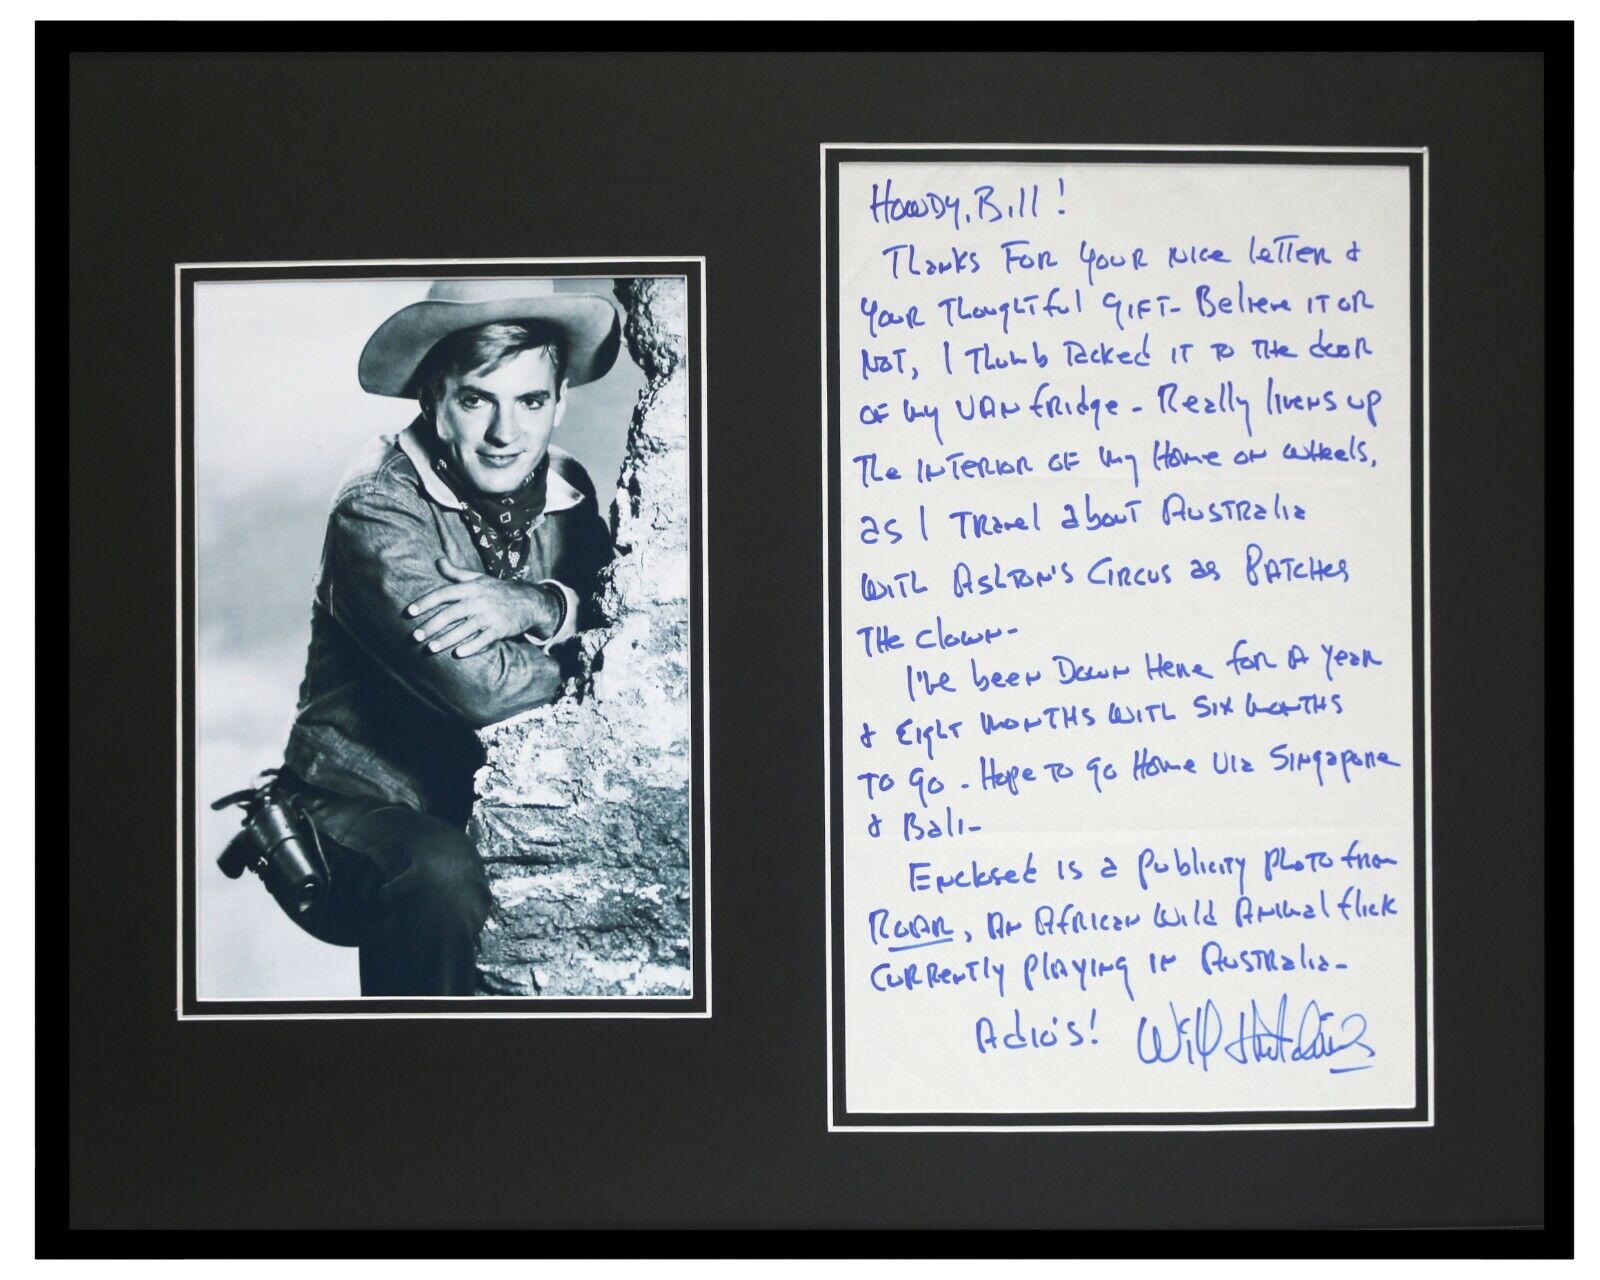 Howdy, Bill!
Thanks for your nice letter &
your thoughtful gift - Believe it or
not, I thumb tacked it to the door
of my van fridge - Really livens up
the interior of my home on wheels,
as I travel about Australia
with Ashton's Circus as Patches
the clown -
I've been down here for a year
& eight months with six months
to go - Hope to go home via Singapore
& Bali -
Enclosed is a publicity photo from
Roar, an African wild animal flick
currently playing in Australia -
Adio's! Will Hutchins